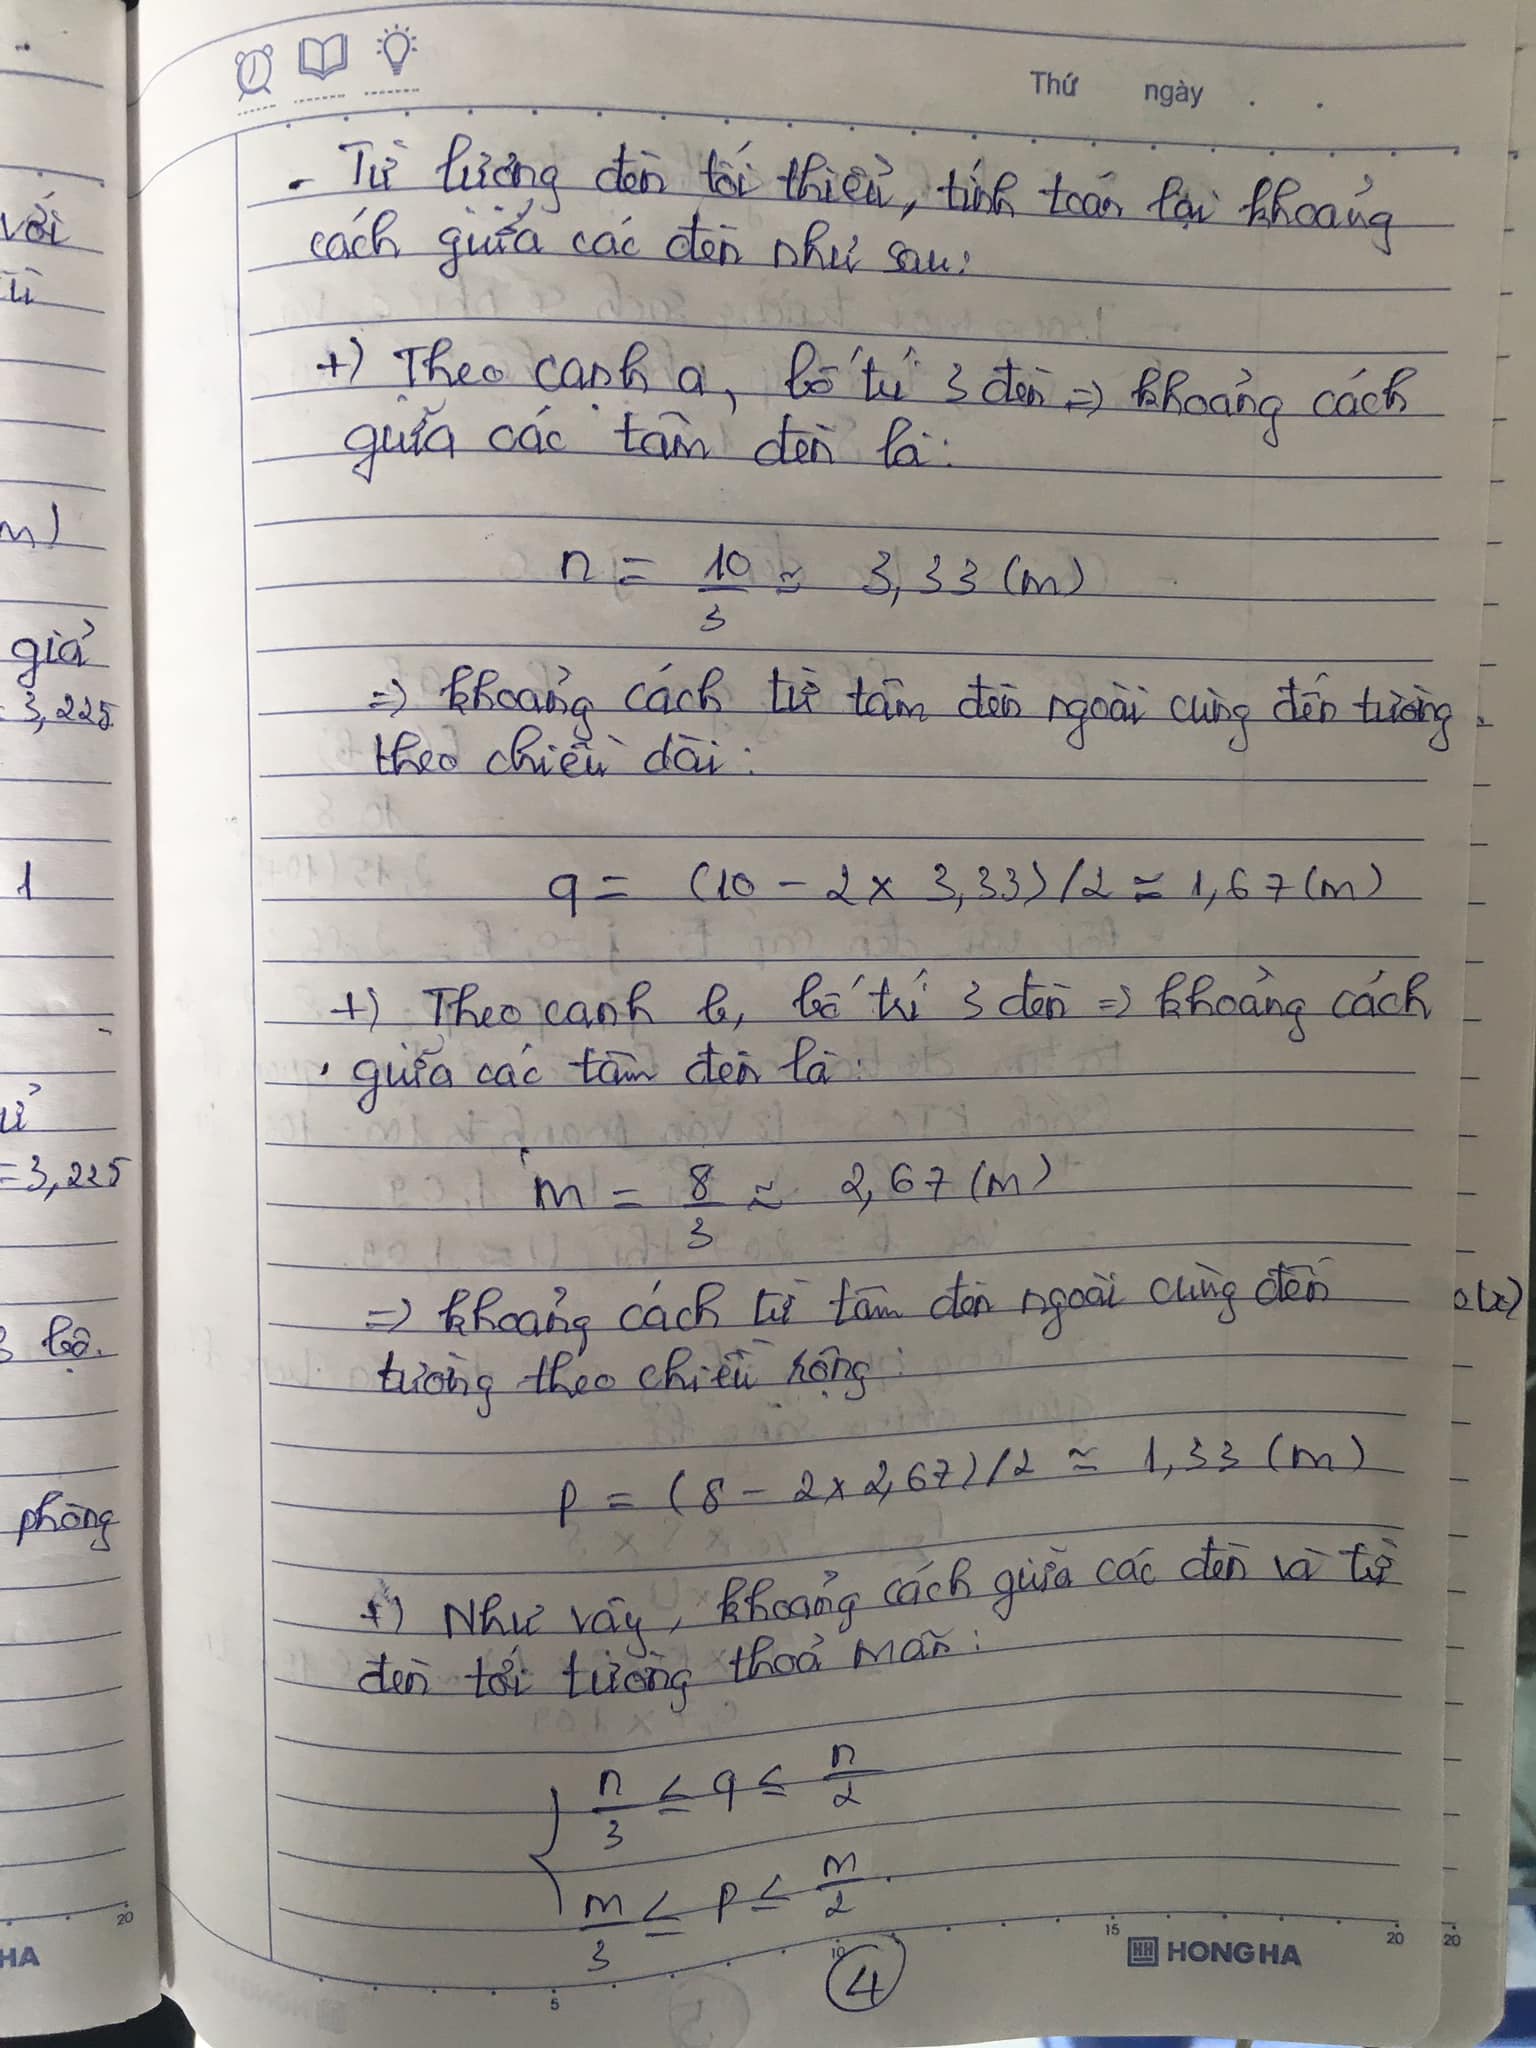 Thứ ngày . .
- Từ lượng đèn tối thiểu, tính toán lại khoảng
cách giữa các đèn như sau:
+) Theo cạnh a, bố trí 3 đèn => khoảng cách
giữa các tâm đèn là:
n = 10/3 ≈ 3,33 (m)
=> khoảng cách từ tâm đèn ngoài cùng đến tường
theo chiều dài:
q = (10 - 2 x 3,33)/2 ≈ 1,67 (m)
+) Theo cạnh b, bố trí 3 đèn => khoảng cách
giữa các tâm đèn là:
m = 8/3 ≈ 2,67 (m)
=> khoảng cách từ tâm đèn ngoài cùng đến
tường theo chiều rộng:
p = (8 - 2 x 2,67)/2 ≈ 1,33 (m)
+) Như vậy, khoảng cách giữa các đèn và từ
đèn tới tường thoả mãn:
n/3 ≤ q ≤ n/2
m/3 ≤ p ≤ m/2
5 10 15 20
HONG HA
4
với
m)
giả
= 3,225
1
= 3,225
3 bộ.
phòng
20
HA
20